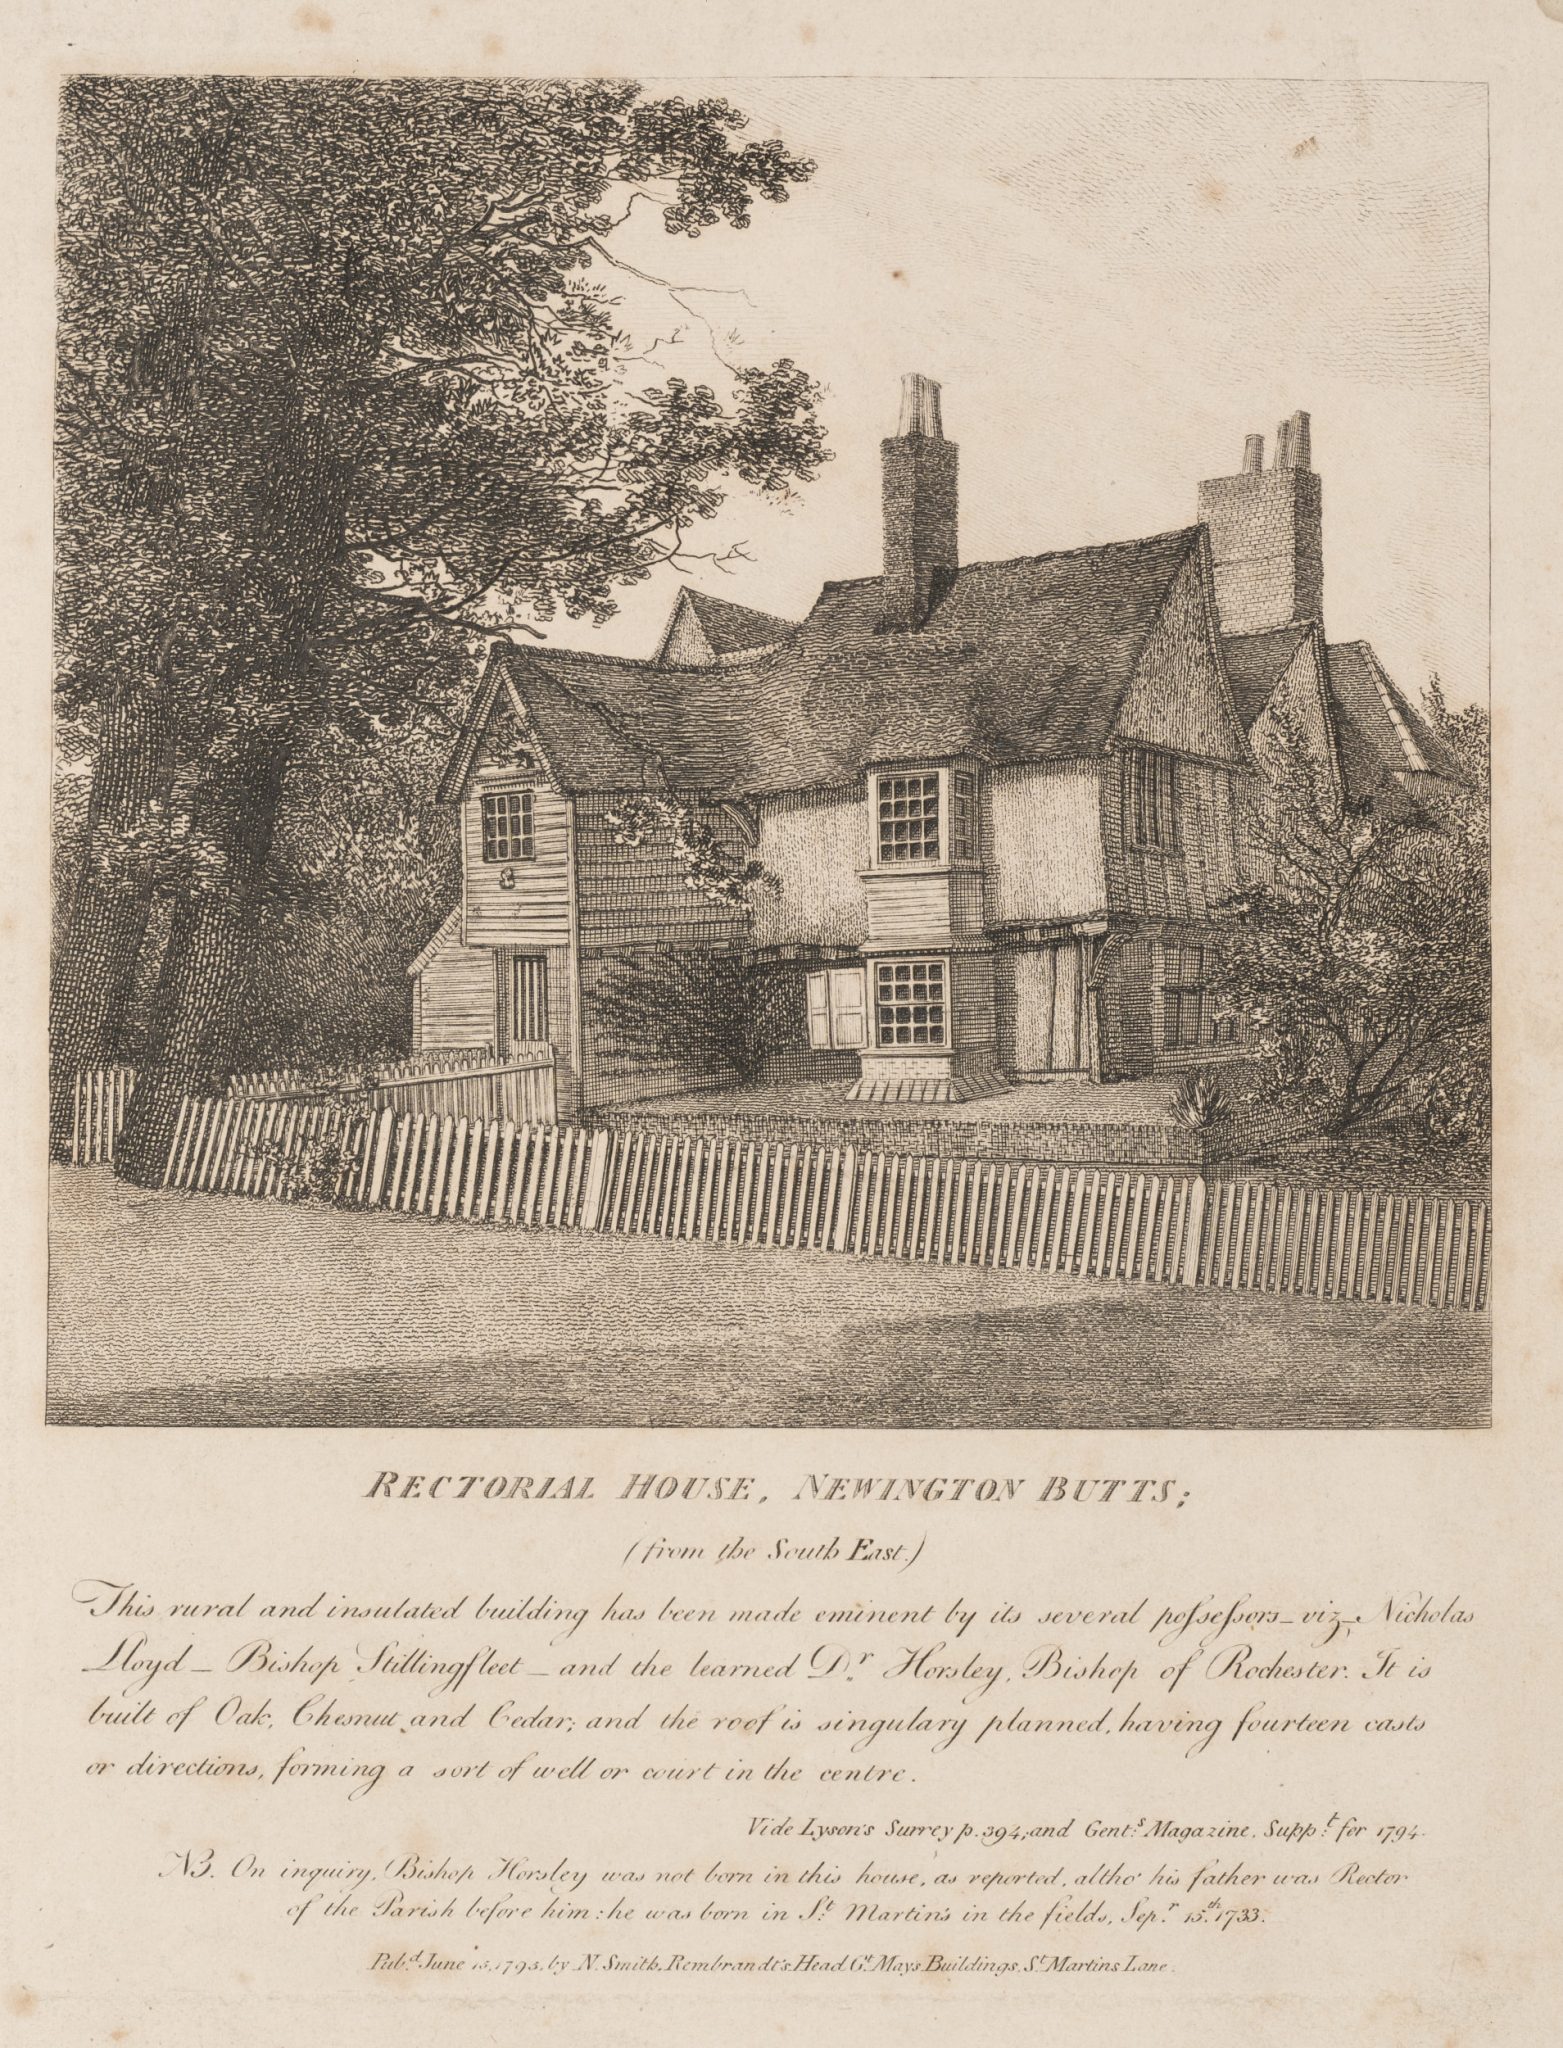 RECTORIAL HOUSE, NEWINGTON BUTTS;
(from the South East.)
This rural and insulated building has been made eminent by its several poſseſsors_viz_, Nicholas
Lloyd _ Bishop Stillingfleet _ and the learned Dr. Horsley, Bishop of Rochester. It is
built of Oak, Chesnut and Cedar; and the roof is singulary planned, having fourteen casts
or directions, forming a sort of well or court in the centre.
Vide Lyson's Surrey p. 394; and Gent.s Magazine, Supp.t for 1794.
NB. On inquiry, Bishop Horsley was not born in this house, as reported, altho' his father was Rector
of the Parish before him: he was born in St. Martin's in the fields, Sep.r 15.th 1733.
Pub.d June 15, 1795, by N. Smith, Rembrandt's Head Gt. Mays Buildings, St. Martins Lane.